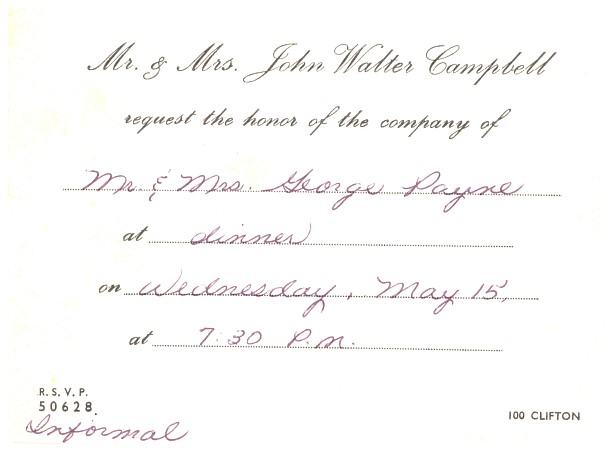 Mr. & Mrs. John Walter Campbell
request the honor of the company of
Mr. & Mrs. George Payne
at dinner
on Wednesday, May 15,
at 7:30 P.M.
R. S. V. P.
50628.
100 CLIFTON
Informal